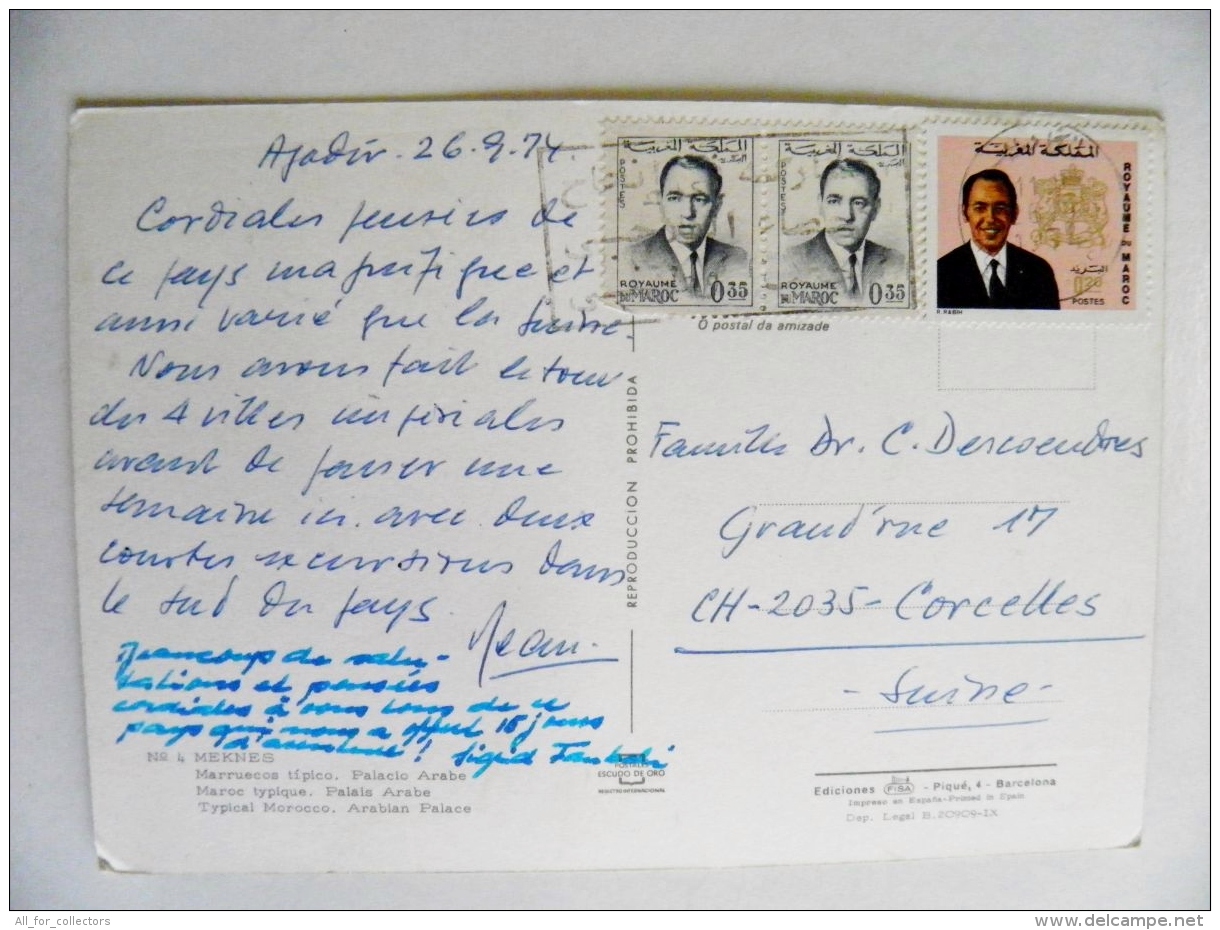 Agadir. 26.9.74.
Cordiales pensées de
ce pays magnifique et
aussi varié que la Suisse.
Nous avons fait le tour
des 4 villes impériales
avant de passer une
semaine ici avec deux
courtes excursions dans
le sud du pays.
Jean.
Beaucoup de salu-
tations et pensées
cordiales à vous tous de ce
pays qui nous a offert 15 jours
d'aventure! Sigrid
Nº 4 MEKNES
Marruecos típico. Palacio Arabe
Maroc typique. Palais Arabe
Typical Morocco. Arabian Palace
POSTALES
ESCUDO DE ORO
REGISTRO INTERNACIONAL
REPRODUCCION PROHIBIDA
O postal da amizade
المملكة المغربية
البريد
POSTES
ROYAUME
DU MAROC
0.35
المملكة المغربية
البريد
POSTES
ROYAUME
DU MAROC
0.35
المملكة المغربية
ROYAUME DU MAROC
البريد
0.20
POSTES
Famille Dr. C. Descoendres
Grand'rue 17
CH-2035-Corcelles
- Suisse -
Ediciones FISA - Piqué, 4 - Barcelona
Impreso en España-Printed in Spain
Dep. Legal B. 20909-IX
All_for_collectors
delcampe.net